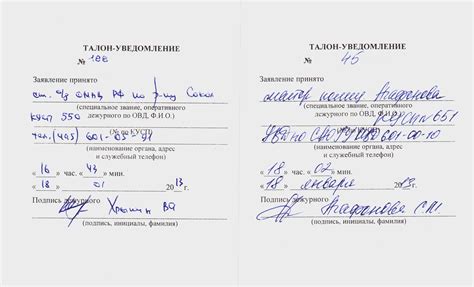 ТАЛОН-УВЕДОМЛЕНИЕ
№ 188
Заявление принято
ст. о/у РФ по р-ну Сокол
(специальное звание, оперативного
КУСП 550 дежурного по ОВД, Ф.И.О.)
(№ по КУСП)
601-05-
(наименование органа, адрес
и служебный телефон)
« 16 » час. « 43 » мин.
« 18 » 01 2013г.
Подпись дежурного
(подпись, инициалы, фамилия)
ТАЛОН-УВЕДОМЛЕНИЕ
№ 45
Заявление принято
майор Агафонова
(специальное звание, оперативного
дежурного по ОВД, Ф.И.О.) КУСП 651
УВД по СВАО 601-00-10
(наименование органа, адрес
и служебный телефон)
« 18 » час. « 02 » мин.
« 18 » января 2013г.
Подпись дежурного
Агафонова С.Н.
(подпись, инициалы, фамилия)